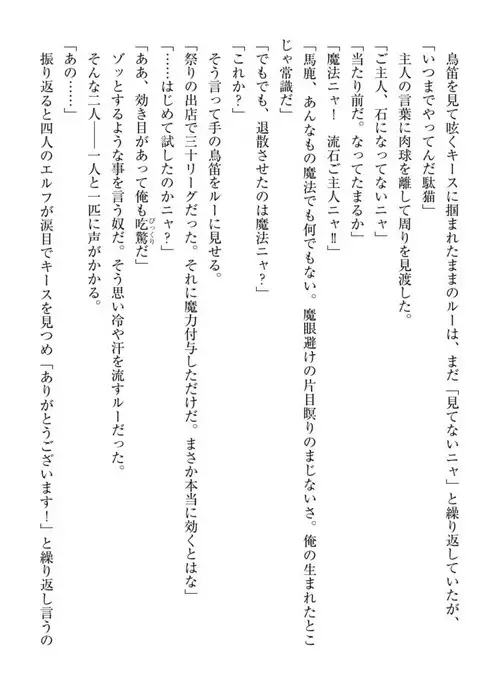 鳥笛を見て呟くキースに掴まれたままのルーは、まだ「見てないニャ」と繰り返していたが、
「いつまでやってんだ駄猫」
主人の言葉に肉球を離して周りを見渡した。
「ご主人、石になってないニャ」
「当たり前だ。なってたまるか」
「魔法ニャ！　流石ご主人ニャ‼」
「馬鹿、あんなもの魔法でも何でもない。魔眼避けの片目瞑りのまじないさ。俺の生まれたとこ
じゃ常識だ」
「でもでも、退散させたのは魔法ニャ？」
「これか？」
そう言って手の鳥笛をルーに見せる。
「祭りの出店で三十リーグだった。それに魔力付与しただけだ。まさか本当に効くとはな」
「……はじめて試したのかニャ？」
「ああ、効き目があって俺も吃驚だ」
びっくり
ゾッとするような事を言う奴だ。そう思い冷や汗を流すルーだった。
そんな二人――一人と一匹に声がかかる。
「あの……」
振り返ると四人のエルフが涙目でキースを見つめ「ありがとうございます！」と繰り返し言うの